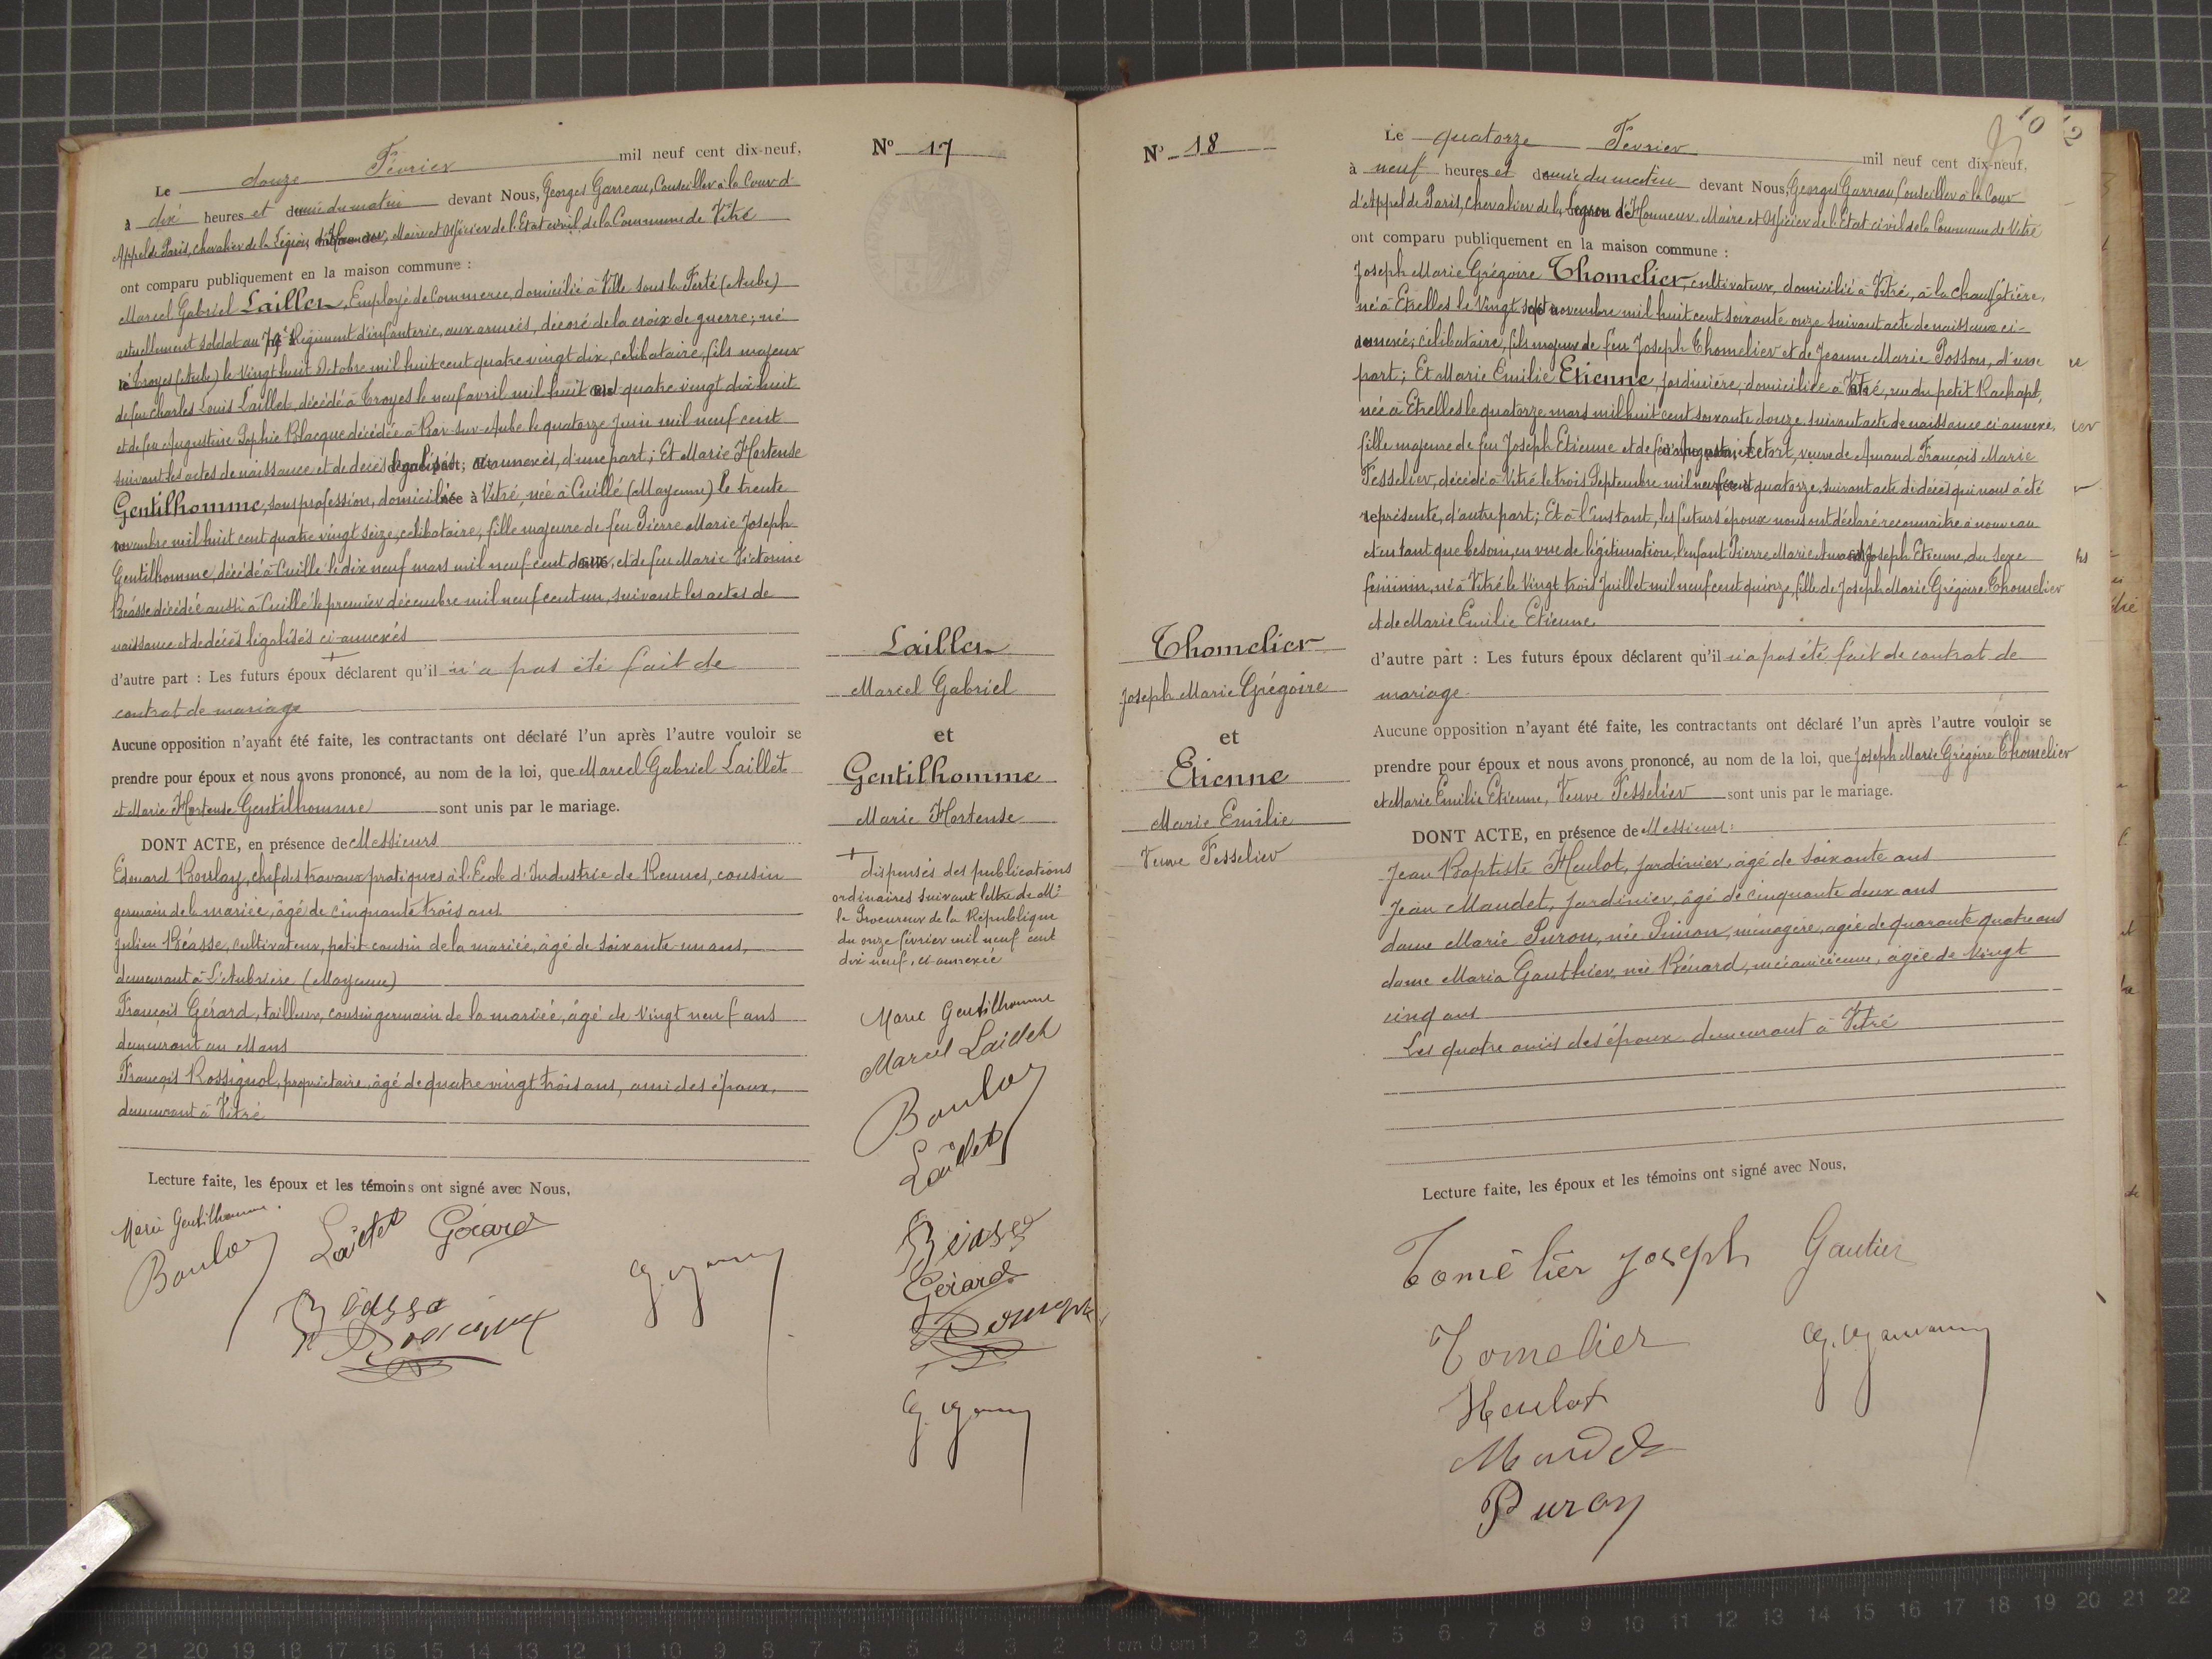 Le douze Février mil neuf cent dix-neuf,
à dix heures et demie du matin devant Nous, Georges Garreau, Conseiller à la Cour d'
Appel de Paris, chevalier de la Légion d'Honneur, Maire et Officier de l'Etat civil de la Commune de Vitré
ont comparu publiquement en la maison commune :
Marcel Gabriel Laillet, Employé de Commerce, domicilié à Ville sous la Ferté (Aube)
actuellement soldat au Régiment d'infanterie, aux armées, décoré de la croix de guerre; né
à Troyes (Aube) le vingt huit Octobre mil huit cent quatre vingt dix, célibataire, fils majeur
de feu Charles Louis Laillet, décédé à Troyes le neuf avril mil huit cent quatre vingt dix huit
et de feu Augustine Sophie Blacque décédée à Bar-sur-Aube le quatorze Juin mil neuf cent
suivant les actes de naissance et de décès légalisés, ci-annexés, d'une part; Et Marie Hortense
Gentilhomme, sans profession, domiciliée à Vitré, née à Cuillé (Mayenne) le trente
novembre mil huit cent quatre vingt seize, célibataire, fille majeure de feu Pierre Marie Joseph
Gentilhomme, décédé à Cuillé le dix neuf mars mil neuf cent douze, et de feu Marie Victorine
Béasse décédée aussi à Cuillé le premier décembre mil neuf cent un, suivant les actes de
naissance et de décès légalisés ci-annexés
+
d'autre part : Les futurs époux déclarent qu'il n'a pas été fait de
contrat de mariage
Aucune opposition n'ayant été faite, les contractants ont déclaré l'un après l'autre vouloir se
prendre pour époux et nous avons prononcé, au nom de la loi, que Marcel Gabriel Laillet
et Marie Hortense Gentilhomme sont unis par le mariage.
DONT ACTE, en présence de Messieurs
Edouard Boulay, chef des travaux pratiques à l'Ecole d'Industrie de Rennes, cousin
germain de la mariée, âgé de cinquante trois ans
Julien Béasse, cultivateur, petit cousin de la mariée, âgé de soixante un ans,
demeurant à L'Aubrière (Mayenne)
François Gérard, tailleur, cousin germain de la mariée, âgé de vingt neuf ans
demeurant au Mans
François Rossignol, propriétaire, âgé de quatre vingt trois ans, ami des époux,
demeurant à Vitré
Lecture faite, les époux et les témoins ont signé avec Nous,
Marie Gentilhomme
Boulay Laillet Gérard
Béasse
Nº 17
Laillet
Marcel Gabriel
et
Gentilhomme
Marie Hortense
+ dispensés des publications
ordinaires suivant lettre de Mr
le Procureur de la République
du onze février mil neuf cent
dix neuf, ci-annexée
Marie Gentilhomme
Marcel Laillet
Boulay
Laillet
Béasse
Gérard
Nº 18
Thomelier
Joseph Marie Grégoire
et
Etienne
Marie Emilie
Veuve Fesselier
10 12
Le quatorze Février mil neuf cent dix-neuf,
à neuf heures et demie du matin devant Nous, Georges Garreau, Conseiller à la Cour
d'Appel de Paris, chevalier de la Légion d'Honneur, Maire et Officier de l'Etat civil de la Commune de Vitré
ont comparu publiquement en la maison commune :
Joseph Marie Grégoire Thomelier, cultivateur, domicilié à Vitré, à la Chauffetière,
né à Etrelles le vingt sept novembre mil huit cent soixante onze suivant acte de naissance ci-
annexé; célibataire, fils majeur de feu Joseph Thomelier et de Jeanne Marie Posson, d'une
part; Et Marie Emilie Etienne, jardinière, domiciliée à Vitré, rue du petit Rachapt,
née à Etrelles le quatorze mars mil huit cent soixante douze suivant acte de naissance ci-annexé,
fille majeure de feu Joseph Etienne et de feu Augustine, veuve de Amand François Marie
Fesselier, décédé à Vitré le trois Septembre mil neuf cent quatorze, suivant acte de décès qui nous a été
représenté, d'autre part; Et à l'instant, les futurs époux nous ont déclaré reconnaître à nouveau
et en tant que besoin, en vue de légitimation, l'enfant Pierre Marie Amand Joseph Etienne, du sexe
féminin, né à Vitré le vingt trois Juillet mil neuf cent quinze, fille de Joseph Marie Grégoire Thomelier
et de Marie Emilie Etienne
d'autre part : Les futurs époux déclarent qu'il n'a pas été fait de contrat de
mariage
Aucune opposition n'ayant été faite, les contractants ont déclaré l'un après l'autre vouloir se
prendre pour époux et nous avons prononcé, au nom de la loi, que Joseph Marie Grégoire Thomelier
et Marie Emilie Etienne, Veuve Fesselier sont unis par le mariage.
DONT ACTE, en présence de Messieurs:
Jean Baptiste Heulot, jardinier, âgé de soixante ans
Jean Maudet, jardinier, âgé de cinquante deux ans
dame Marie Puron, née Simon, ménagère, âgée de quarante quatre ans
dame Maria Gauthier née Rénard, mécanicienne, âgée de vingt
cinq ans
Les quatre amis des époux demeurant à Vitré
Lecture faite, les époux et les témoins ont signé avec Nous,
Tomélier Joseph Gautier
Tomelier
Heulot
Maudet
Puron
23 22 21 20 19 18 17 16 15 14 13 12 11 10 9 8 7 6 5 4 3 2 1 cm 0 cm 1 2 3 4 5 6 7 8 9 10 11 12 13 14 15 16 17 18 19 20 21 22